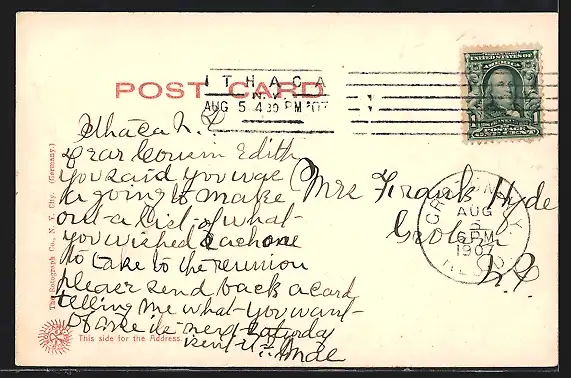 POST CARD
ITHACA
N.Y.
AUG 5 4 30 PM '07
UNITED STATES OF
AMERICA
1
POSTAGE
Ithaca N.
Dear Cousin Edith
you said you was
a going to make
out a list of what
you wished each one
to take to the reunion
please send back a card
telling me what you want
of me is next Saturday
Mrs Frank Hyde
Groton
N.Y.
GROTON N.Y.
AUG
5
6 PM
1907
REC'D
The Rotograph Co., N. Y. City. (Germany.)
This side for the Address.